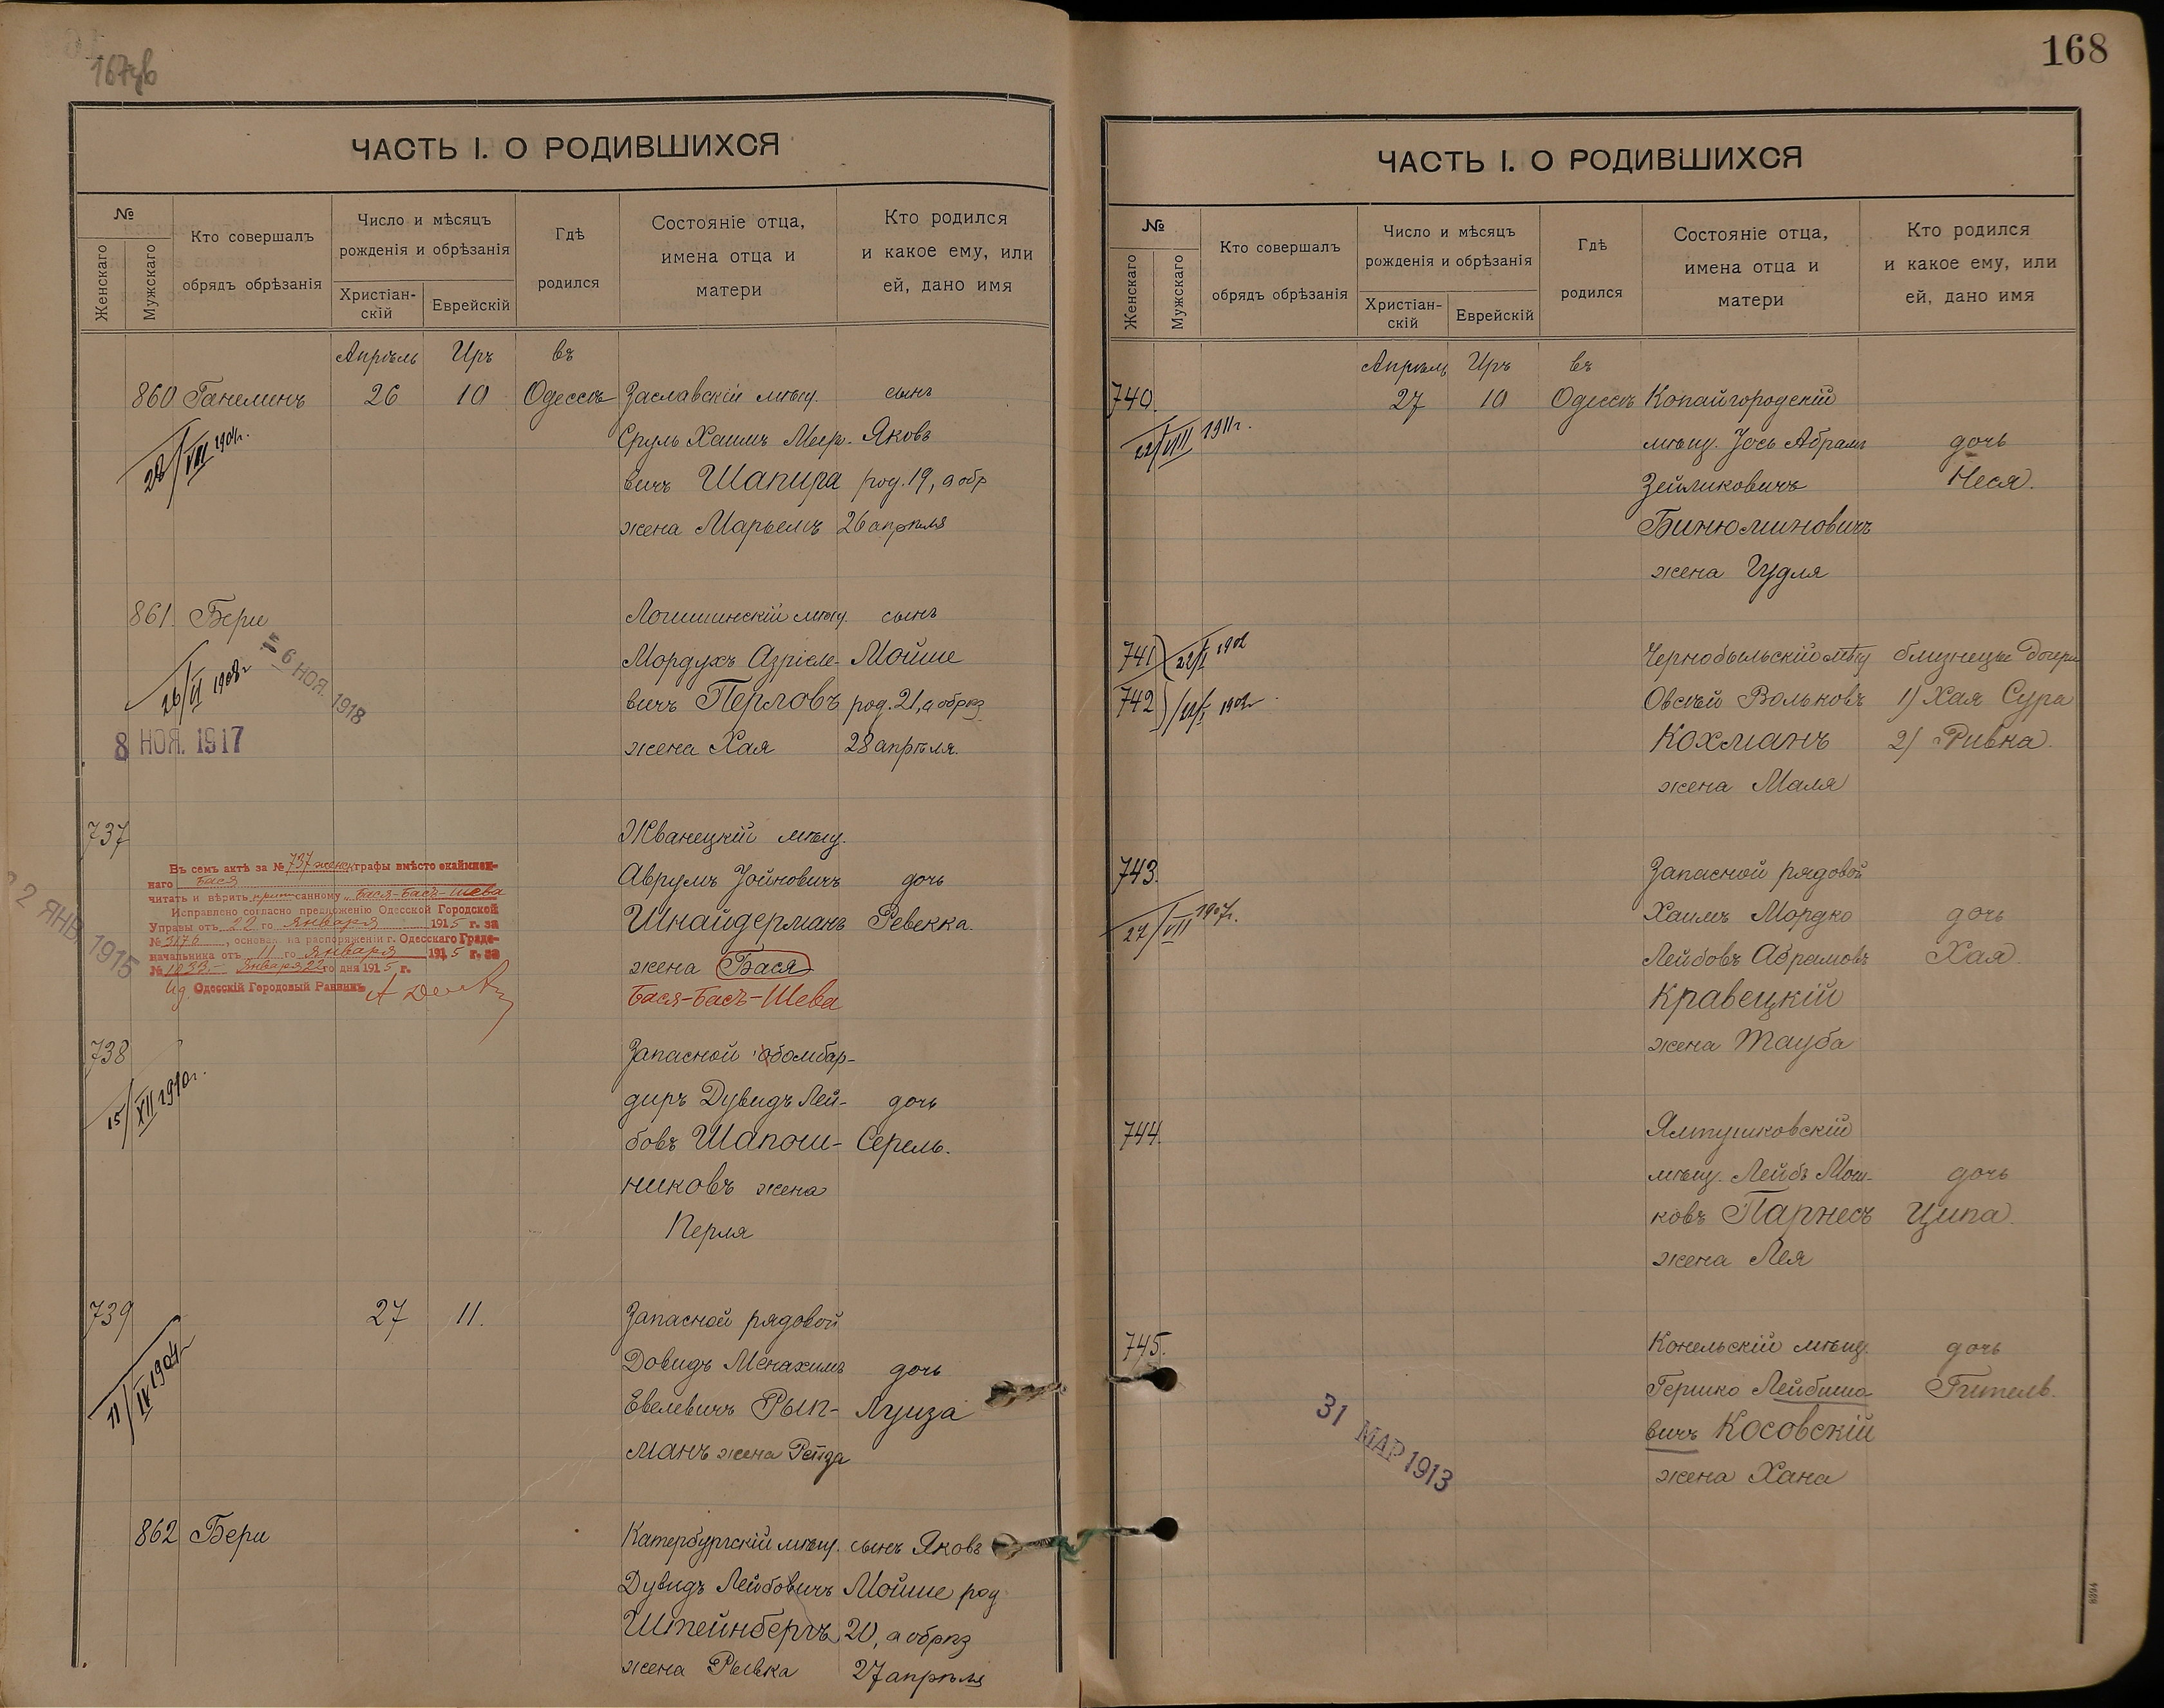 167об
ЧАСТЬ I. О РОДИВШИХСЯ
№
Женскаго
Мужскаго
Кто совершалъ
обрядъ обрѣзанія
Число и мѣсяцъ
рожденія и обрѣзанія
Христіан-
скій
Еврейскій
Гдѣ
родился
Состояніе отца,
имена отца и
матери
Кто родился
и какое ему, или
ей, дано имя
Апрѣль Иръ въ
860 Ганелинъ 26 10 Одессѣ Заславскій мѣщ. сынъ
28/VII 1904г. Сруль Хаимъ Меер- Яковъ
вичъ Шапира род. 19, а обр
жена Марьемъ 26 апрѣля
861. Бери Логишинскій мѣщ. сынъ
26/VI 1908г 6 НОЯ. 1918 Мордухъ Азріеле- Мойше
вичъ Перловъ род. 21, а обрѣз
8 НОЯ. 1917 жена Хая 28 апрѣля.
737 Жванецкій мѣщ.
Аврумъ Іойновичъ дочь
Шнайдерманъ Ревекка.
жена Бася
Бася-Басъ-Шева
Въ семъ актѣ за № 737 женск графы вмѣсто окаймлен-
наго Бася
читать и вѣрить припи санному „Бася-Басъ-Шева
Исправлено согласно предложенію Одесской Городской
Управы отъ 22 го января 1915 г. за
№ 5176, основан. на распоряженіи г. Одесскаго Градо-
начальника отъ 11 го января 1915 г. за
№ 1033.- Января 22 го дня 1915 г.
Ид. Одесскій Городовый Раввинъ
22 ЯНВ. 1915
738 Запасной бомбар-
15/XII 1910г. диръ Дувидъ Лей- дочь
бовъ Шапош- Серель.
никовъ жена
Перля
739 27 11. Запасной рядовой
11/IV 1904г Довидъ Менахимъ дочь
Евелевичъ Рып- Луиза
манъ жена Рейда
862 Бери Катербургскій мѣщ. сынъ Яковъ
Дувидъ Лейбовичъ Мойше род
Штейнбергъ 20, а обрѣз
жена Рывка 27 апрѣля
168
ЧАСТЬ I. О РОДИВШИХСЯ
№
Женскаго
Мужскаго
Кто совершалъ
обрядъ обрѣзанія
Число и мѣсяцъ
рожденія и обрѣзанія
Христіан-
скій
Еврейскій
Гдѣ
родился
Состояніе отца,
имена отца и
матери
Кто родился
и какое ему, или
ей, дано имя
Апрѣль Иръ въ
740. 27 10 Одессѣ Копайгородскій
22/VIII 1911г. мѣщ. Іось Абрамъ дочь
Зейликовичъ Неся.
Бинюминовичъ
жена Гудля
741 22/I 1902 Чернобыльскій мѣщ близнецы дочери
742 22/I 1902г Овсѣй Вольковъ 1) Хая Сура
Кохманъ 2) Ривка.
жена Маля
743. Запасной рядовой
27/VII 1907г. Хаимъ Мордко дочь
Лейбовъ Абрамовъ Хая.
Кравецкій
жена Тауба
744. Ялтушковскій
мѣщ. Лейбъ Мош- дочь
ковъ Парнесъ Ципа.
жена Лея
745. Конельскій мѣщ. дочь
Гершко Лейбишо- Гитель.
вичъ Косовскій
31 МАР 1913
жена Хана